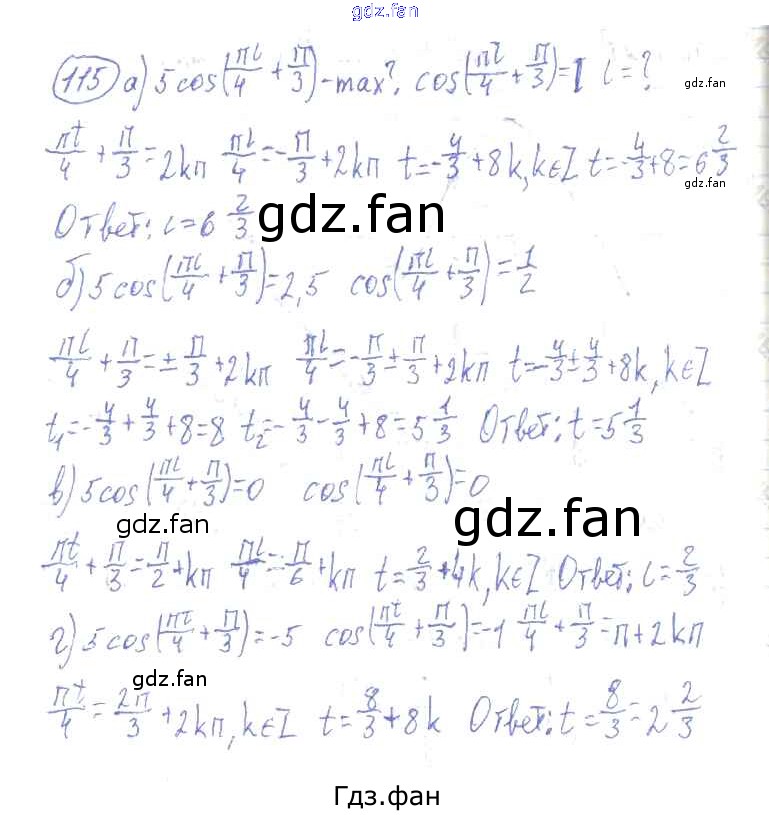 gdz.fan
115 а) 5cos(πt/4 + π/3) - max?, cos(πt/4 + π/3) = 1 t = ?
gdz.fan
πt/4 + π/3 = 2kπ πt/4 = -π/3 + 2kπ t = -4/3 + 8k, k∈Z t = -4/3 + 8 = 6 2/3
gdz.fan
Ответ: t = 6 2/3
gdz.fan
б) 5cos(πt/4 + π/3) = 2,5 cos(πt/4 + π/3) = 1/2
πt/4 + π/3 = ± π/3 + 2kπ πt/4 = -π/3 ± π/3 + 2kπ t = -4/3 ± 4/3 + 8k, k∈Z
t₁ = -4/3 + 4/3 + 8 = 8 t₂ = -4/3 - 4/3 + 8 = 5 1/3 Ответ: t = 5 1/3
в) 5cos(πt/4 + π/3) = 0 cos(πt/4 + π/3) = 0
gdz.fan
gdz.fan
πt/4 + π/3 = π/2 + kπ πt/4 = π/6 + kπ t = 2/3 + 4k, k∈Z Ответ: t = 2/3
г) 5cos(πt/4 + π/3) = -5 cos(πt/4 + π/3) = -1 πt/4 + π/3 = π + 2kπ
gdz.fan
πt/4 = 2π/3 + 2kπ, k∈Z t = 8/3 + 8k Ответ: t = 8/3 = 2 2/3
Гдз.фан